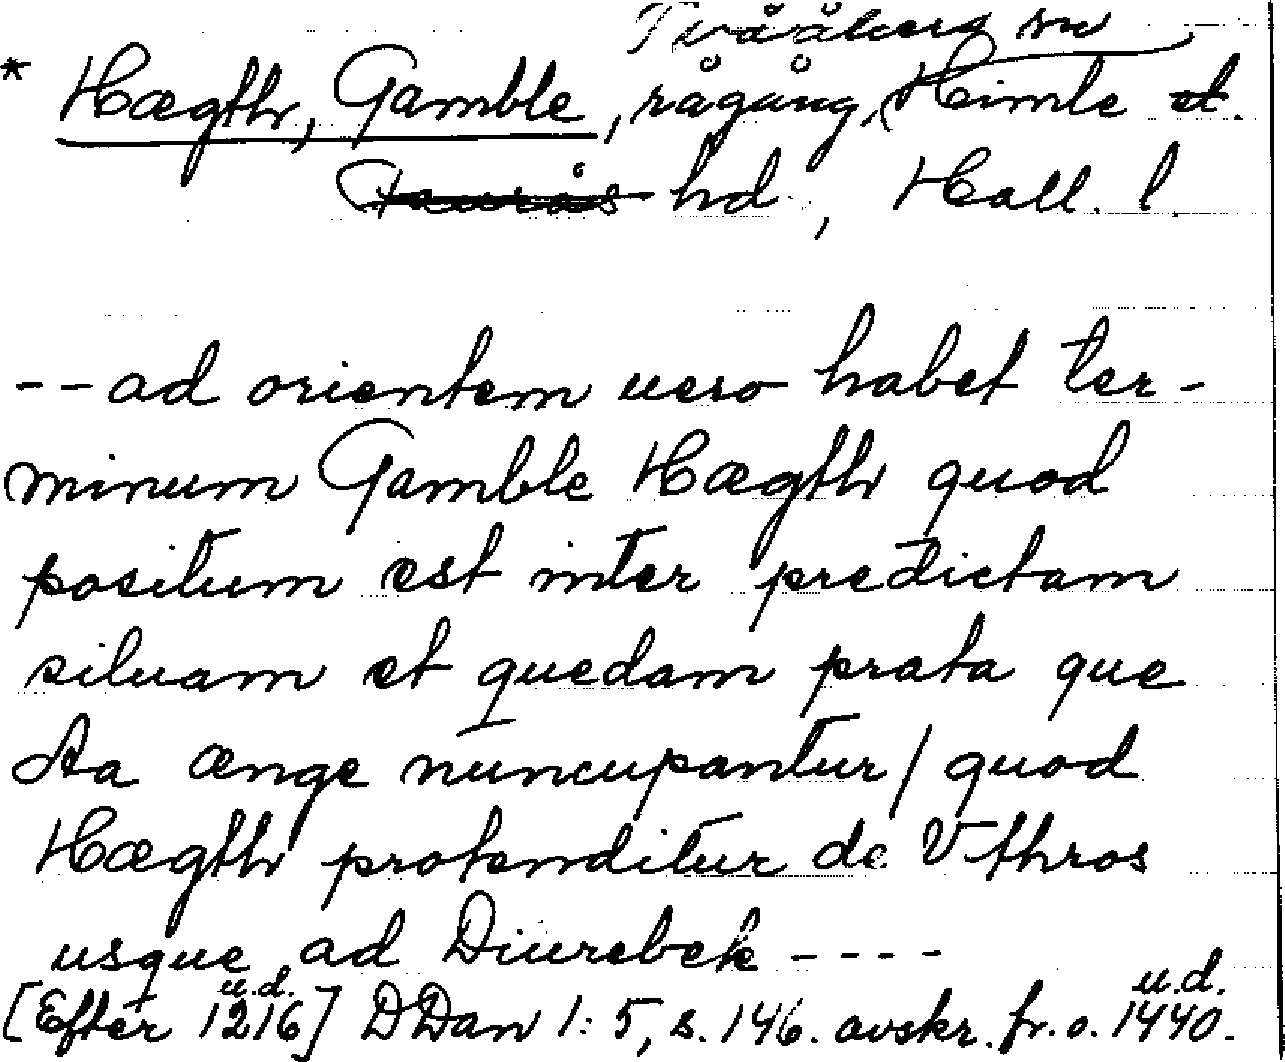 Tvååkers sn
* Hægthr, Gamble, rågång, Himle et.
Faurås hd, Hall. l.
-- ad orientem uero habet ter-
minum Gamble Hægthr quod
positum est inter predictam
siluam et quedam prata que
Aa ænge nuncupantur / quod
Hægthr protenditur de Vthros
usque ad Diurebek ----
u.d. u.d.
[Efter 1216] DDan 1:5, s. 146. avskr. fr. o. 1440.